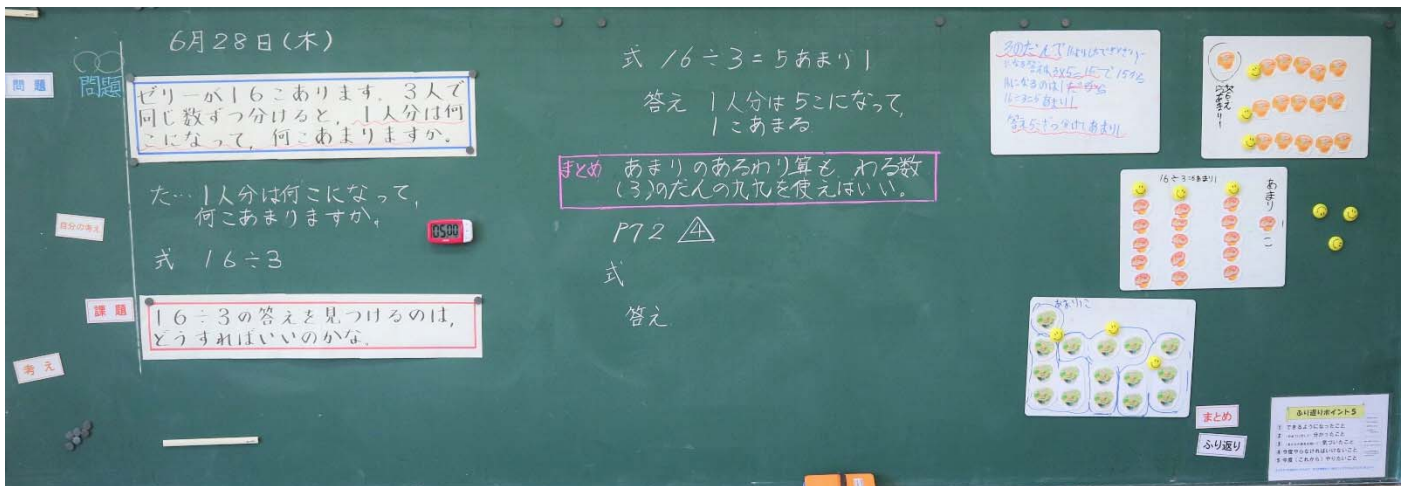 6月28日(木)
問題
問題
ゼリーが16こあります。3人で
同じ数ずつ分けると、1人分は何
こになって、何こあまりますか。
た…1人分は何こになって、
何こあまりますか。
自分の考え
05:00
式 16÷3
課題
16÷3の答えを見つけるのは、
どうすればいいのかな。
考え
式 16÷3=5あまり1
答え 1人分は5こになって、
1こあまる
まとめ あまりのあるわり算も、わる数
(3)のだんの九九を使えばいい。
P72 ④
式
答え
3のだんで
答え5こずつ分けてあまり1
16÷3=5あまり1
あまり
1こ
あまり1こ
まとめ
ふり返り
ふり返りポイント5
① できるようになったこと
② 分かったこと
③ 気づいたこと
④ 今度やらなければいけないこと
⑤ 今度(これから)やりたいこと